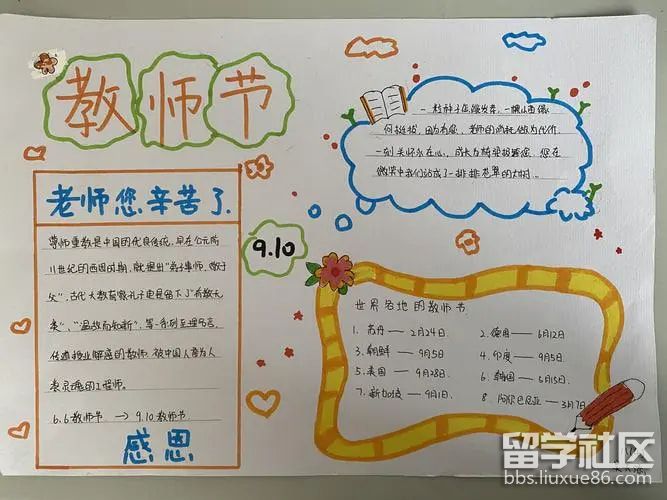 教师节
老师您辛苦了.
尊师重教是中国的优良传统,早在公元前
11世纪的西周时期,就提出"弟子事师,敬于
父",古代大教育家孔子更是留下了"有教无
类"、"温故而知新",等一系列至理名言,
传道授业解惑的教师,被中国人誉为人
类灵魂的工程师。
6.6教师节 → 9.10教师节
感恩
9.10
何挺拔,因为有您,老师的
一刻关怀永在心,成长为
微笑中我们站成了一排排花草的大树...
世界各地的教师节
1. 苏丹——2月24日
2. 德国——6月12日
3. 朝鲜——9月5日
4. 印度——9月5日
5. 泰国——9月28日
6. 韩国——5月15日
7. 新加坡——9月1日
8. 阿尔巴尼亚——3月7日
留学社区
bbs.liuxue86.com